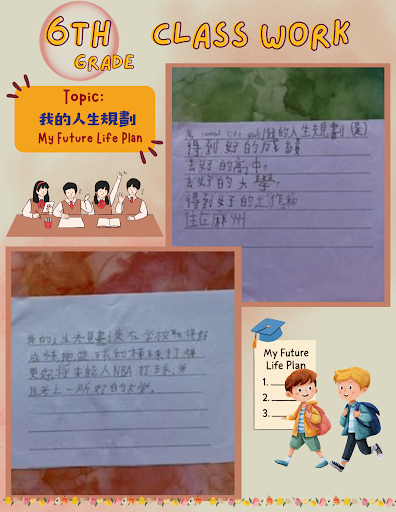 6TH
GRADE
CLASS WORK
Topic:
我的人生規劃
My Future Life Plan
My Life 我的人生規劃(是)
得到好的成績
去好的高中,
去好的大學,
得到好的工作和
住在麻州
我的人生規劃是在學校取得好
成績,把籃球和棒球打得
更好,將來能入NBA打球,並
且考上一所好的大學.
My Future
Life Plan
1.
2.
3.